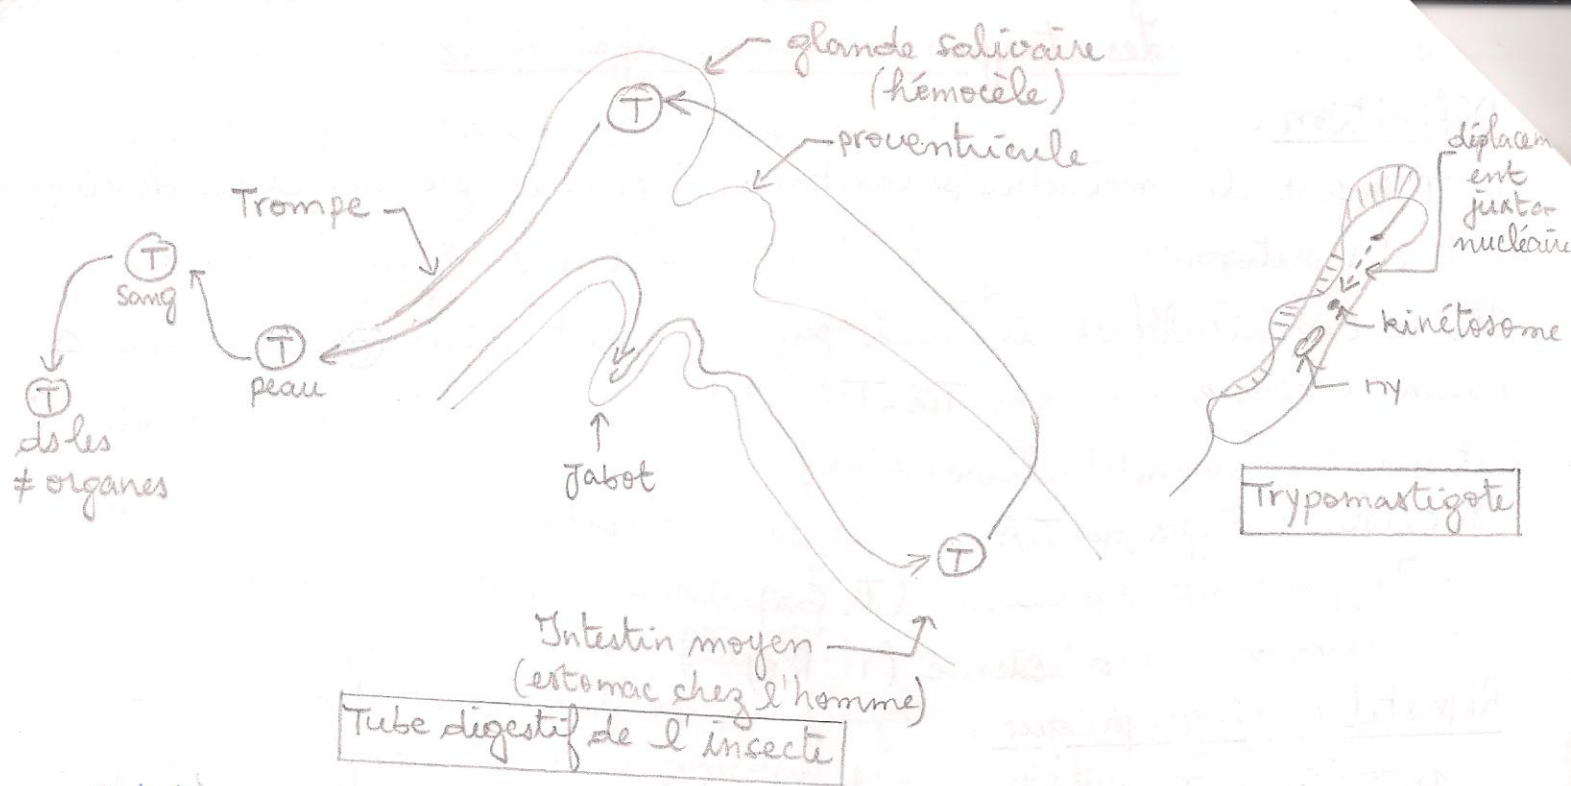 glande salivaire
(hémocèle)
proventricule
Trompe
T
T
sang
T
peau
T
ds les
≠ organes
Jabot
T
Intestin moyen
(estomac chez l'homme)
Tube digestif de l'insecte
déplacem
ent
juxta-
nucléaire
kinétosome
ny
Trypomastigote